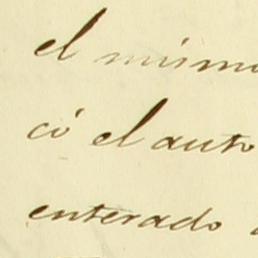 el mismo
có el auto
enterado